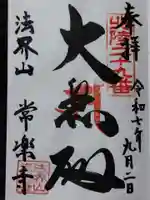 奉拝
令和七年九月二日
大悲殿
法界山
常楽寺